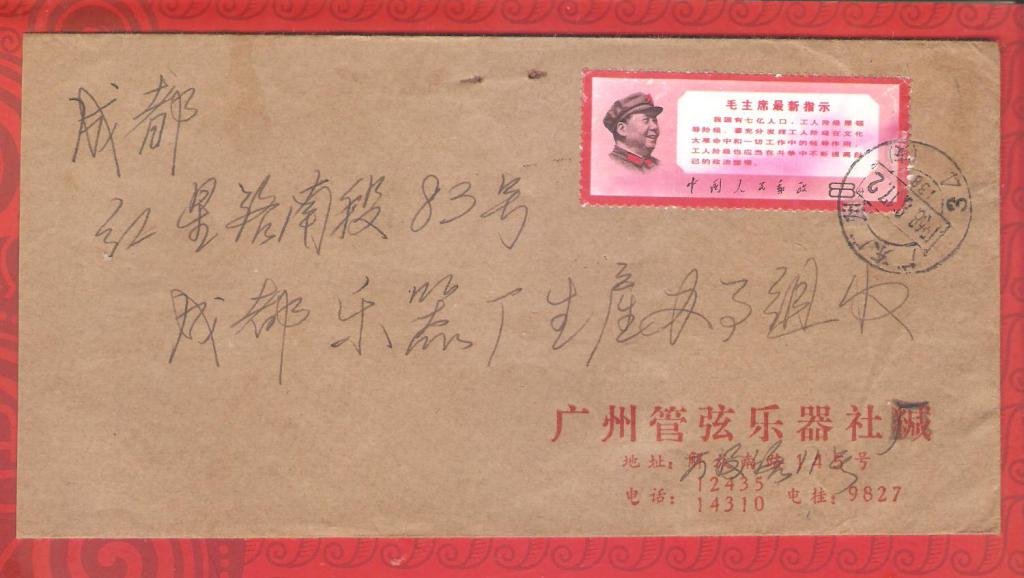 成都
红星路南段83号
成都乐器厂生产办子组收
毛主席最新指示
我国有七亿人口,工人阶级是领
导阶级。要充分发挥工人阶级在文化
大革命中和一切工作中的领导作用。
工人阶级也应当在斗争中不断提高自
己的政治觉悟。
中国人民邮政 8
广东 广州
3
广州管弦乐器社缄
厂
地址:解放南路145号
电话:12435
14310 电挂:9827